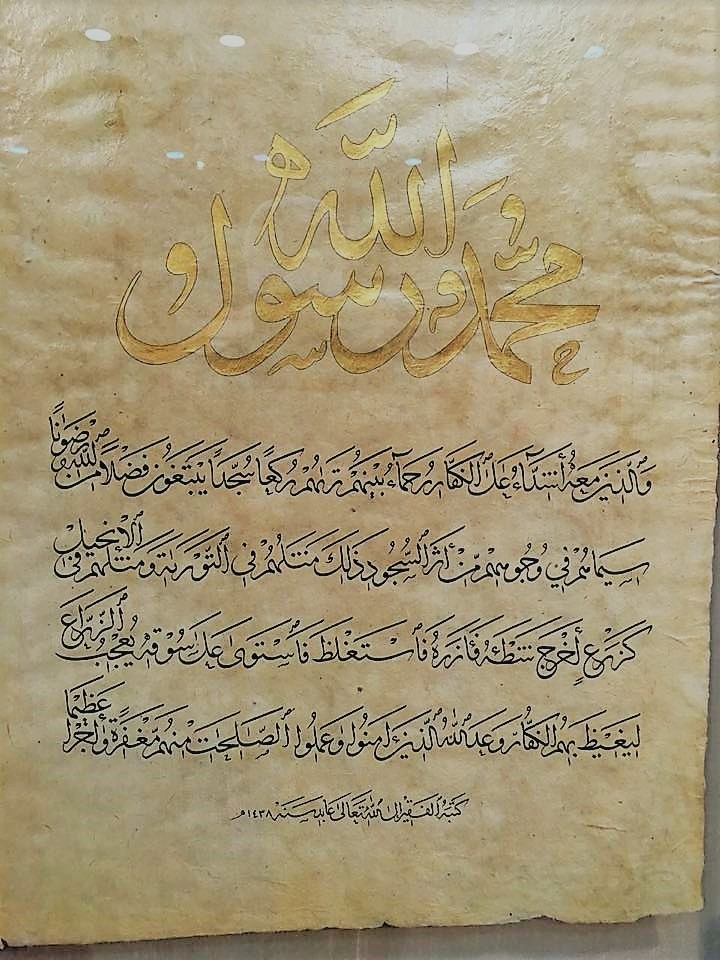 محمد رسول الله
وَٱلَّذِينَ مَعَهُۥٓ أَشِدَّآءُ عَلَى ٱلْكُفَّارِ رُحَمَآءُ بَيْنَهُمْ تَرَىٰهُمْ رُكَّعًا سُجَّدًا يَبْتَغُونَ فَضْلًا مِّنَ ٱللَّهِ وَرِضْوَٰنًا
سِيمَاهُمْ فِي وُجُوهِهِم مِّنْ أَثَرِ ٱلسُّجُودِ ذَٰلِكَ مَثَلُهُمْ فِي ٱلتَّوْرَىٰةِ وَمَثَلُهُمْ فِي ٱلْإِنجِيلِ
كَزَرْعٍ أَخْرَجَ شَطْـَٔهُۥ فَـَٔازَرَهُۥ فَٱسْتَغْلَظَ فَٱسْتَوَىٰ عَلَىٰ سُوقِهِۦ يُعْجِبُ ٱلزُّرَّاعَ
لِيَغِيظَ بِهِمُ ٱلْكُفَّارَ وَعَدَ ٱللَّهُ ٱلَّذِينَ ءَامَنُوا۟ وَعَمِلُوا۟ ٱلصَّٰلِحَٰتِ مِنْهُم مَّغْفِرَةً وَأَجْرًا عَظِيمًا
كتبه الفقير إلى الله تعالى عابد سنة ١٤٣٨م